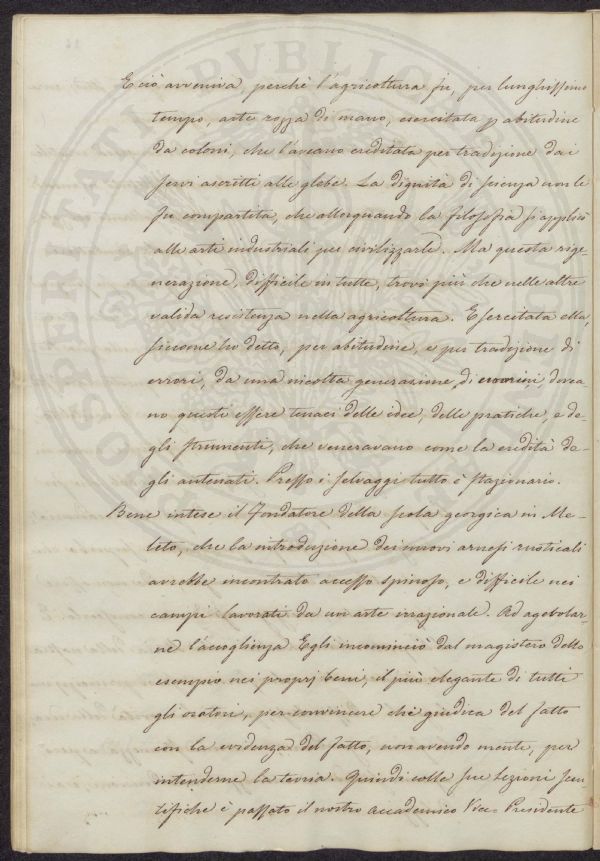 E ciò avveniva, perchè l'agricoltura fu, per lunghissimo
tempo, arte rozza di mano, esercitata p abitudine
da coloni, che l'aveano ereditata per tradizione dai
servi ascritti alle glebe. La dignità di scienza non le
fu compartita, che allorquando la filosofia si applicò
alle arti industriali per civilizzarle. Ma questa rige-
nerazione, difficile in tutte, trovò più che nelle altre
valida resistenza nella agricoltura. Esercitata ella,
siccome ho detto, per abitudine, e per tradizione di
errori, da una incolta generazione di uomini dovea-
no questi essere tenaci delle idee, delle pratiche, e de-
gli strumenti, che veneravano come la eredità de-
gli antenati. Presso i selvaggi tutto è stazionario.
Bene intese il Fondatore della scola georgica in Me-
leto, che la introduzione dei nuovi arnesi rusticali
avrebbe incontrato accesso spinoso, e difficile nei
campi lavorati da un arte irrazionale. Ad agevolar-
ne l'accoglienza Egli incominciò dal magistero dello
esempio nei proprj beni, il più elegante di tutti
gli oratori, per convincere chi giudica del fatto
con la evidenza del fatto, non avendo mente, per
intenderne la teoria. Quindi colle sue Lezioni scen-
tifiche è passato il nostro accademico Vice-Presidente
PROSPERITATI PVBLICAE